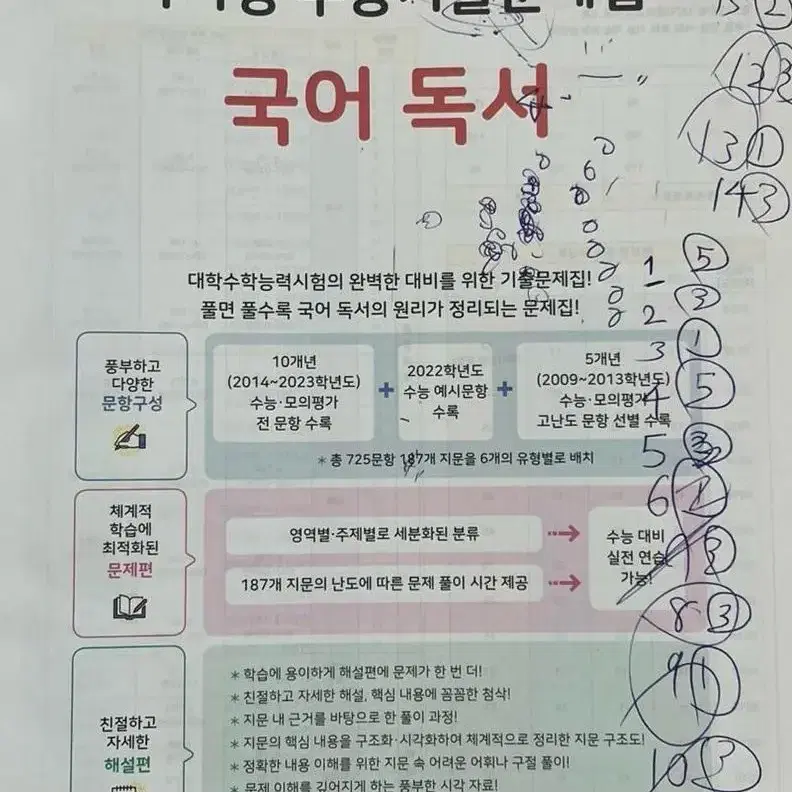 국어 독서
대학수학능력시험의 완벽한 대비를 위한 기출문제집!
풀면 풀수록 국어 독서의 원리가 정리되는 문제집!
풍부하고
다양한
문항구성
10개년
(2014~2023학년도)
수능·모의평가
전 문항 수록
+
2022학년도
수능 예시문항
수록
+
5개년
(2009~2013학년도)
수능·모의평가
고난도 문항 선별 수록
* 총 725문항 187개 지문을 6개의 유형별로 배치
체계적
학습에
최적화된
문제편
영역별·주제별로 세분화된 분류
187개 지문의 난도에 따른 문제 풀이 시간 제공
수능 대비
실전 연습
가능!
친절하고
자세한
해설편
* 학습에 용이하게 해설편에 문제가 한 번 더!
* 친절하고 자세한 해설, 핵심 내용에 꼼꼼한 첨삭!
* 지문 내 근거를 바탕으로 한 풀이 과정!
* 지문의 핵심 내용을 구조화·시각화하여 체계적으로 정리한 지문 구조도!
* 정확한 내용 이해를 위한 지문 속 어려운 어휘나 구절 풀이!
* 문제 이해를 깊어지게 하는 풍부한 시각 자료!
13 ①
14 ③
1 ⑤
2 ③
3 ①
4 ⑤
5
6
8 ③
9 ①
10 ③